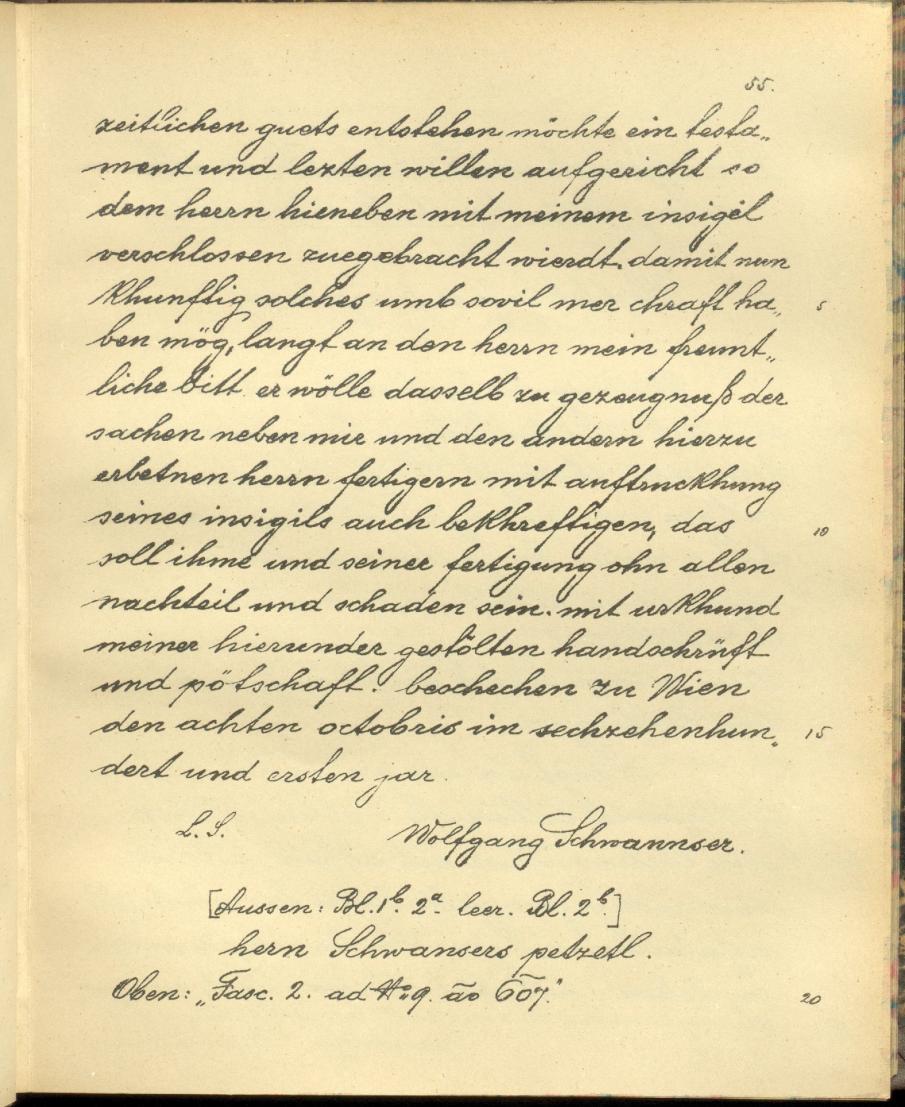 55.
zeitlichen guets entstehen möchte ein testa„
ment und lezten willen aufgericht so
dem herrn hieneben mit meinem insigel
verschlossen zuegebracht wierdt. damit nun
khunftig solches umb sovil mer chraft ha„ 5
ben mög, langt an den herrn mein freunt„
liche bitt er wölle dasselb zu gezeugnuß der
sachen neben mir und den andern hierzu
erbetnen herrn fertigern mit auftruckhung
seines insigils auch bekhreftigen, das 10
soll ihme und seiner fertigung ohn allen
nachteil und schaden sein. mit urkhund
meiner hierunder gestölten handschrüft
und pötschaft. beschechen zu Wien
den achten octobris im sechzehenhun„ 15
dert und ersten jar.
L. S. Wolfgang Schwannser.
[Aussen: Bl. 1b. 2a. leer. Bl. 2b.]
hern Schwansers petzetl.
Oben: „Fasc. 2. ad No 9. ão 607." 20